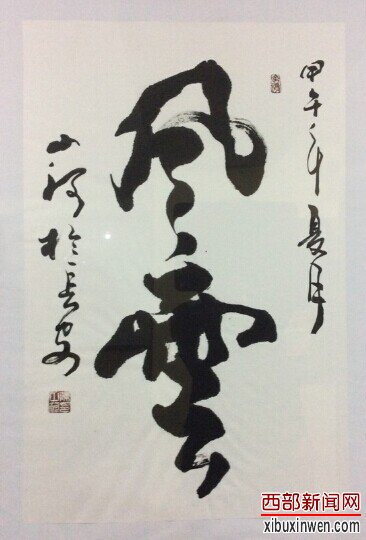 甲午之年夏月
風雲
山河於長安
西部新闻网
xibuxinwen.com